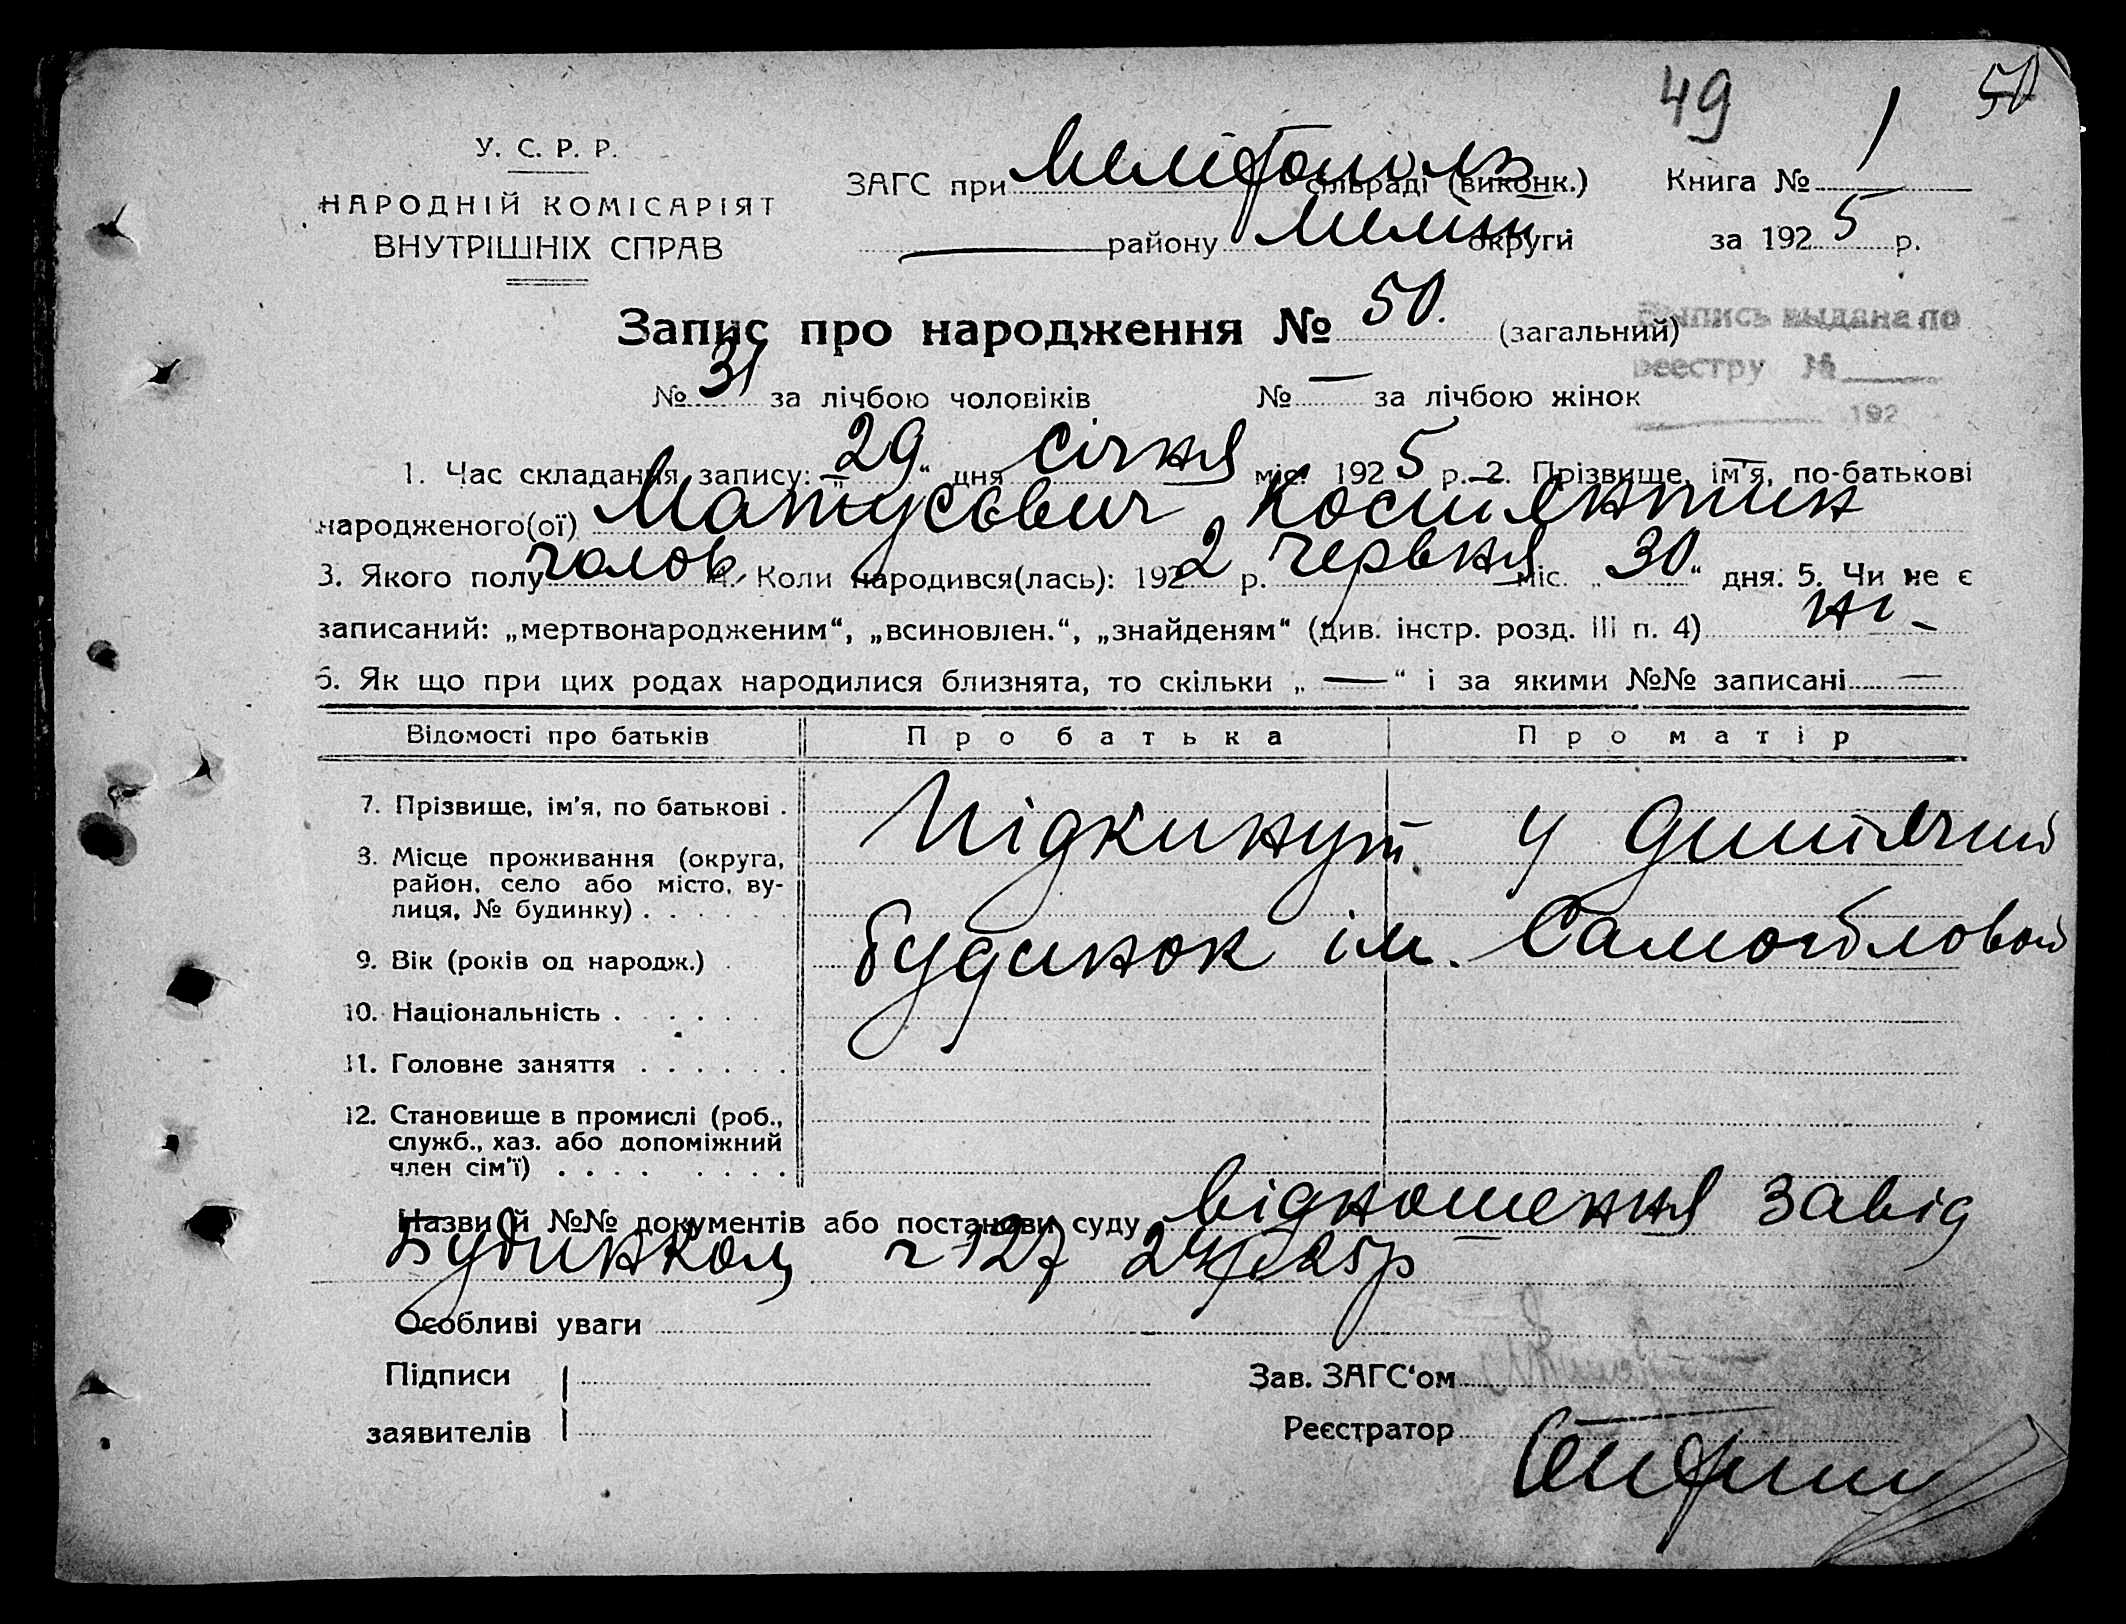 49
50
У. С. Р. Р.
НАРОДНІЙ КОМІСАРІЯТ
ВНУТРІШНІХ СПРАВ
ЗАГС при Мелітополь сільраді (виконк.)
Книга № 1
— району Меліт. округи
за 1925 р.
Запис про народження № 50. (загальний)
Выпись выдана по
реестру №
192
№ 31 за лічбою чоловіків № — за лічбою жінок
1. Час складання запису: „29“ дня січня міс. 1925 р. 2. Прізвище, ім'я, по-батькові
народженого(ої) Матусевич Костянтин
3. Якого полу чолов. 4. Коли народився(лась): 1922 р. червня міс. „30“ дня. 5. Чи не є
записаний: „мертвонародженим“, „всиновлен.“, „знайденям“ (див. інстр. розд. III п. 4) ні —
6. Як що при цих родах народилися близнята, то скільки „—“ і за якими №№ записані —
Відомості про батьків Про батька Про матір
7. Прізвище, ім'я, по батькові .
8. Місце проживання (округа,
район, село або місто, ву-
лиця, № будинку) . . . . . .
Підкинут у дитячий
9. Вік (років од народж.) .
будинок ім. Самойловой
10. Національність . . . . .
11. Головне заняття . . . . . .
12. Становище в промислі (роб.,
служб., хаз. або допоміжний
член сім'ї) . . . . . . . .
Назви й №№ документів або постанови суду відношення завід
Будинком ч 127 24/I 25р
Особливі уваги
Підписи
заявителів
Зав. ЗАГС'ом
Реєстратор